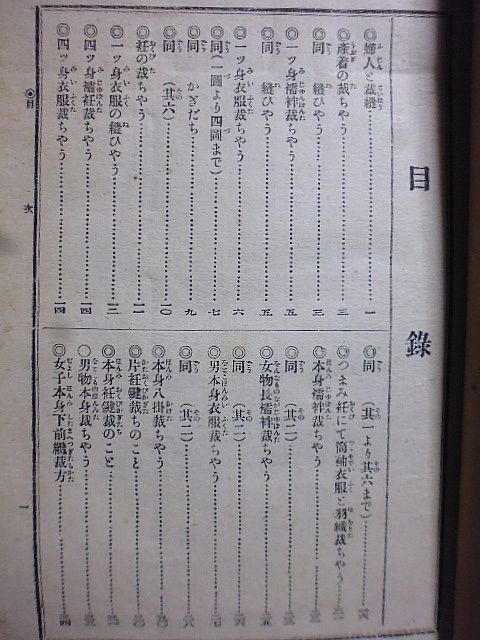 目錄
◎婦人と裁縫…一
◎產着の裁ちやう…三
◎同 縫ひやう…三
◎一ッ身襦袢裁ちやう…五
◎同 縫ひやう…五
◎一ッ身衣服裁ちやう…六
◎同(一圖より四圖まで)…七
◎同 かぎだち…九
◎同 (其六)…一〇
◎衽の裁ちやう…一一
◎一ッ身衣服の縫ひやう…一三
◎四ッ身襦袢裁ちやう…一四
◎四ッ身衣服裁ちやう…一四
◎同 (其一より其六まで)
◎つまみ衽にて筒袖衣服と羽織裁ちやう
◎本身襦袢裁ちやう
◎同 (其二)
◎女物長襦袢裁ちやう
◎同 (其二)
◎男本身衣服裁ちやう
◎同 (其二)
◎本身八掛裁ちやう
◎片衽鍵裁ちのこと
◎本身衽鍵裁のこと
◯男物本身裁ちやう
◎女子本身下前繼裁方
◎目次
一